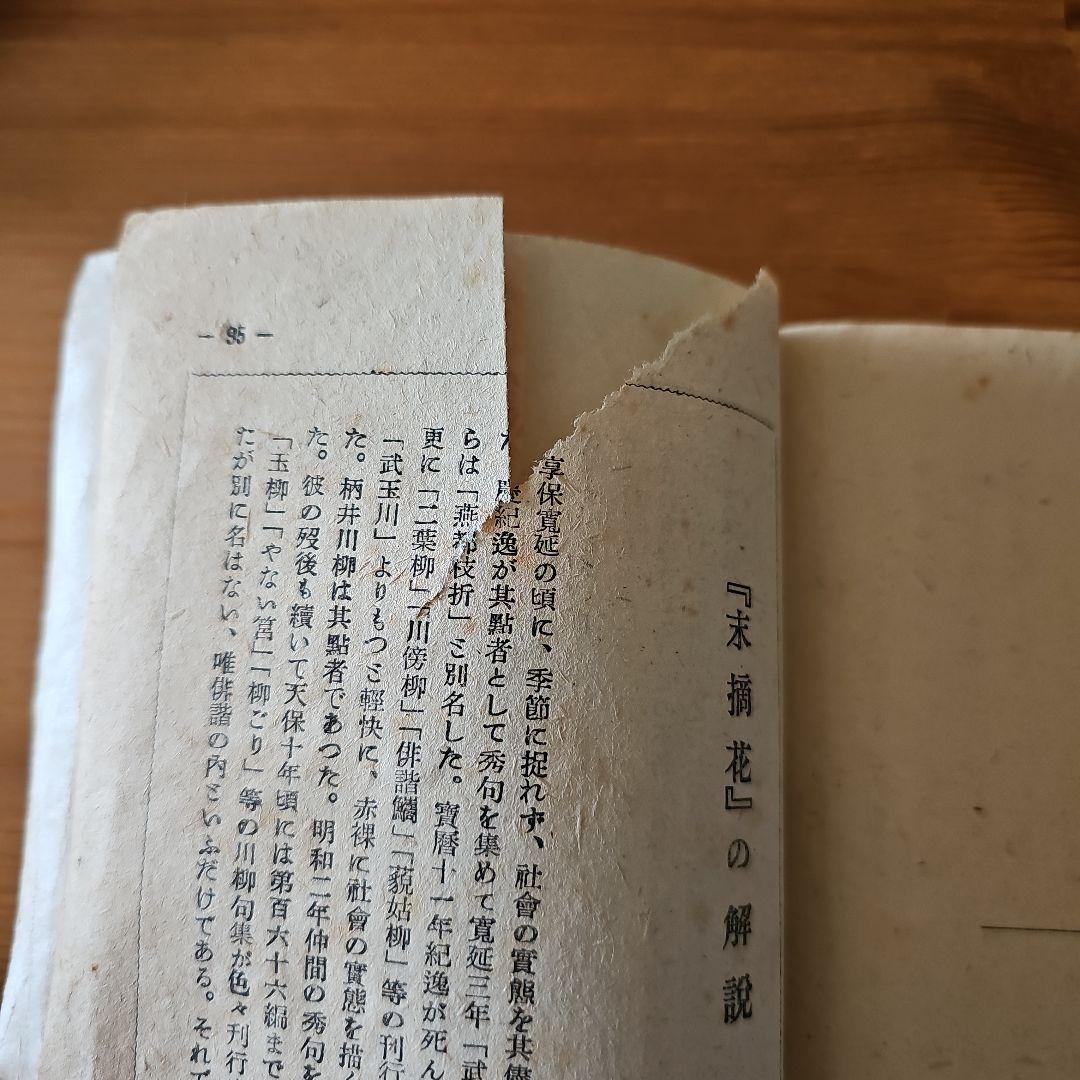 『末摘花』の解説
享保寛延の頃に、季節に捉れず、社會の實態を其儘
紀逸が其點者として秀句を集めて寛延三年「武
らは「燕都枝折」と別名した。寶暦十一年紀逸が死ん
更に「二葉柳」「川傍柳」「俳諧鱅」「藐姑柳」等の刊行
「武玉川」よりもつと輕快に、赤裸に社會の實態を描く
た。柄井川柳は其點者であつた。明和二年仲間の秀句を
た。彼の歿後も續いて天保十年頃には第百六十六編まで
「玉柳」「やない筥」「柳ごり」等の川柳句集が色々刊行
たが別に名はない、唯俳諧の內といふだけである。それで
— 95 —